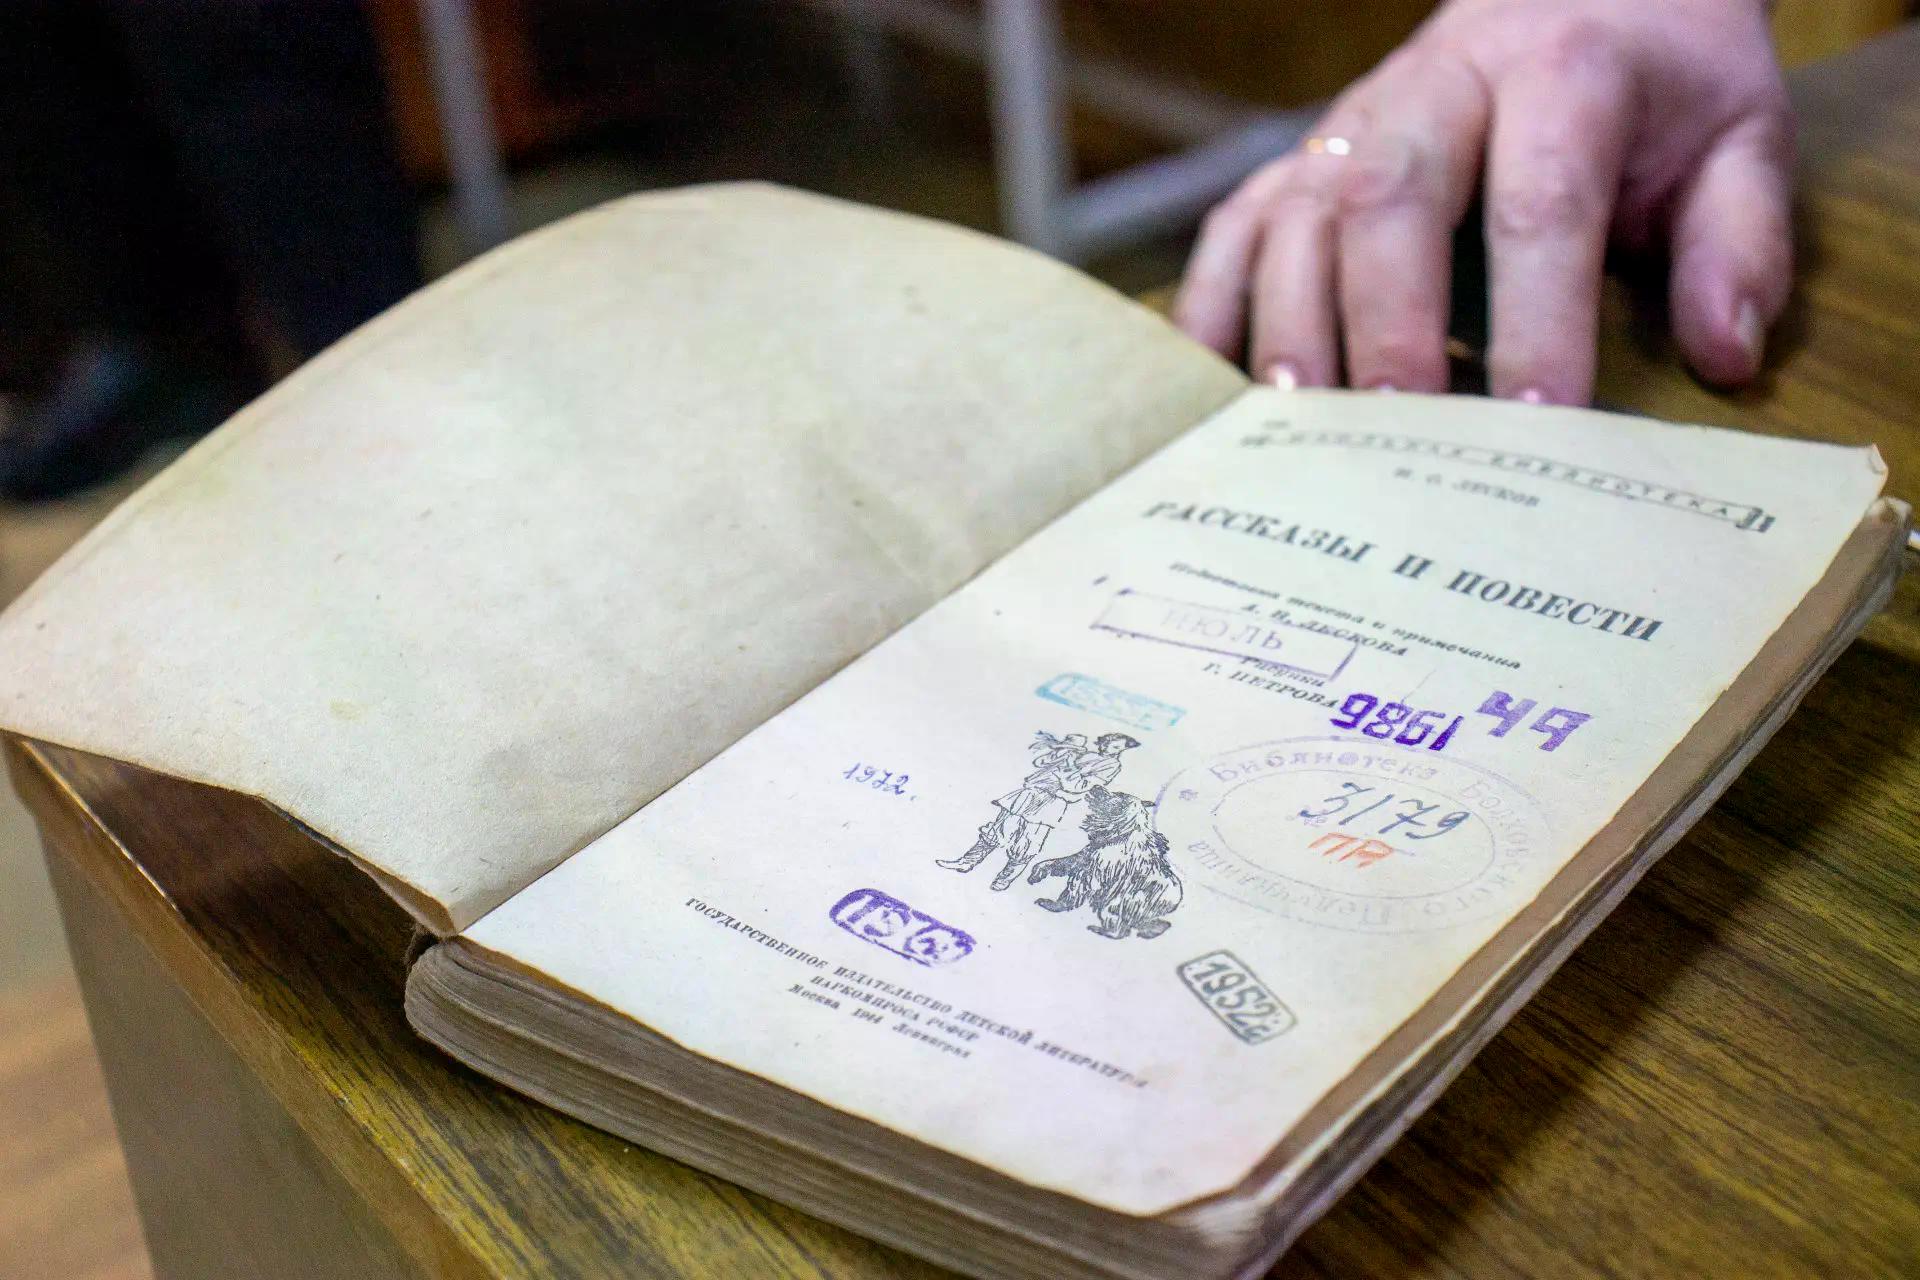 ШКОЛЬНАЯ БИБЛИОТЕКА
Н. С. ЛЕСКОВ
РАССКАЗЫ И ПОВЕСТИ
Подготовка текста и примечания
А. Н. ЛЕСКОВА
ИЮЛЬ
Рисунки
Г. ПЕТРОВА
1986
49
Библиотека Болховского Педучилища
№ 3179
ПА
1972.
1952г.
ГОСУДАРСТВЕННОЕ ИЗДАТЕЛЬСТВО ДЕТСКОЙ ЛИТЕРАТУРЫ
НАРКОМПРОСА РСФСР
Москва 1944 Ленинград